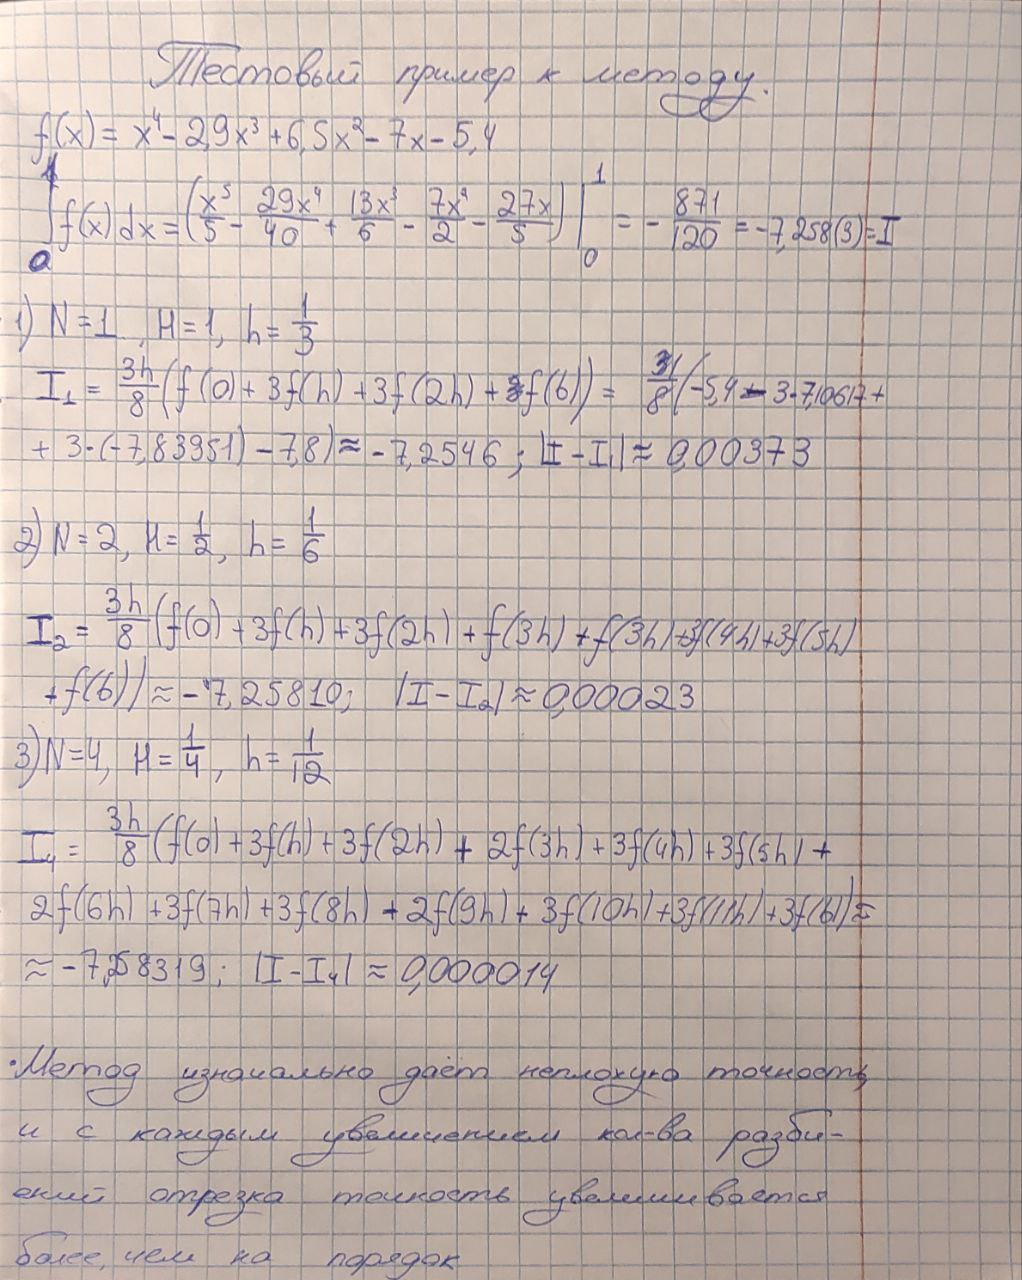 Тестовый пример к методу.
f(x) = x⁴ - 2,9x³ + 6,5x² - 7x - 5,4
∫₀¹ f(x)dx = (x⁵/5 - 29x⁴/40 + 13x³/6 - 7x²/2 - 27x/5) |₀¹ = - 871/120 = -7,258(3) = I
1) N=1, H=1, h = 1/3
I₁ = 3h/8 (f(0) + 3f(h) + 3f(2h) + f(b)) = 1/8 (-5,4 - 3·7,10617 +
+ 3·(-7,83951) - 7,8) ≈ -7,2546 ; |I - I₁| ≈ 0,00373
2) N=2, H = 1/2, h = 1/6
I₂ = 3h/8 (f(0) + 3f(h) + 3f(2h) + f(3h) + f(3h) + 3f(4h) + 3f(5h)
+ f(b)) ≈ -7,25810; |I - I₂| ≈ 0,00023
3) N=4, H = 1/4, h = 1/12
I₄ = 3h/8 (f(0) + 3f(h) + 3f(2h) + 2f(3h) + 3f(4h) + 3f(5h) +
2f(6h) + 3f(7h) + 3f(8h) + 2f(9h) + 3f(10h) + 3f(11h) + 3f(b)) ≈
≈ -7,258319; |I - I₄| ≈ 0,000014
· Метод изначально даёт неплохую точность,
и с каждым увеличением кол-ва разби-
ений отрезка точность увеличивается
более, чем на порядок